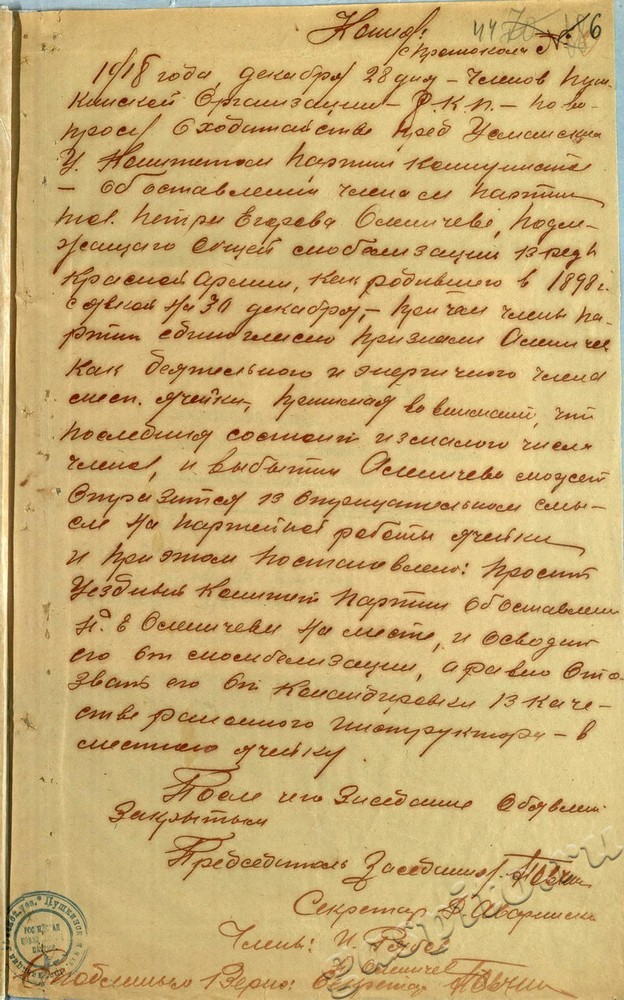 Копия:
с протокола №
1918 года, декабря 28 дня – Членов Пуш-
кинской Организации – Р.К.П. – по во-
просу о ходатайстве пред Усманским
У. Комитетом Партии Коммунистов
– об оставлении членам партии
тов. Петра Егорова Осмичева, подле-
жащаго Общей мобилизации в ряды
Красной Армии, как родившего в 1898 г.
с явкой на 30 декабря, – причем члены па-
ртии единогласно признали
как деятельного и энергичного члена
мест. ячейки, принимая во внимание, что
последняя состоит из малого числа
членов, и выбытии может
отразится в отрицательном смы-
сле на партейной работы ячейки
и при этом постановлено: просить
Уездный Комитет Партии об оставлении
П. Е. на месте, и освободить
его от мобилизации, а равно ото-
звать его от Командировки в каче-
стве районного инструктора – в
местную ячейку.
После чего заседание объявлено
закрытым
Председатель Заседания
Секретар
Члены: И.
С подлинным верно: Секретар